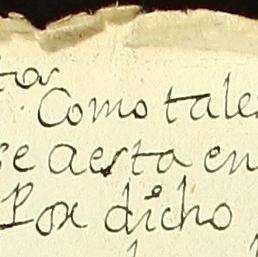 tor
Como tales
se aesta en
Por dicho